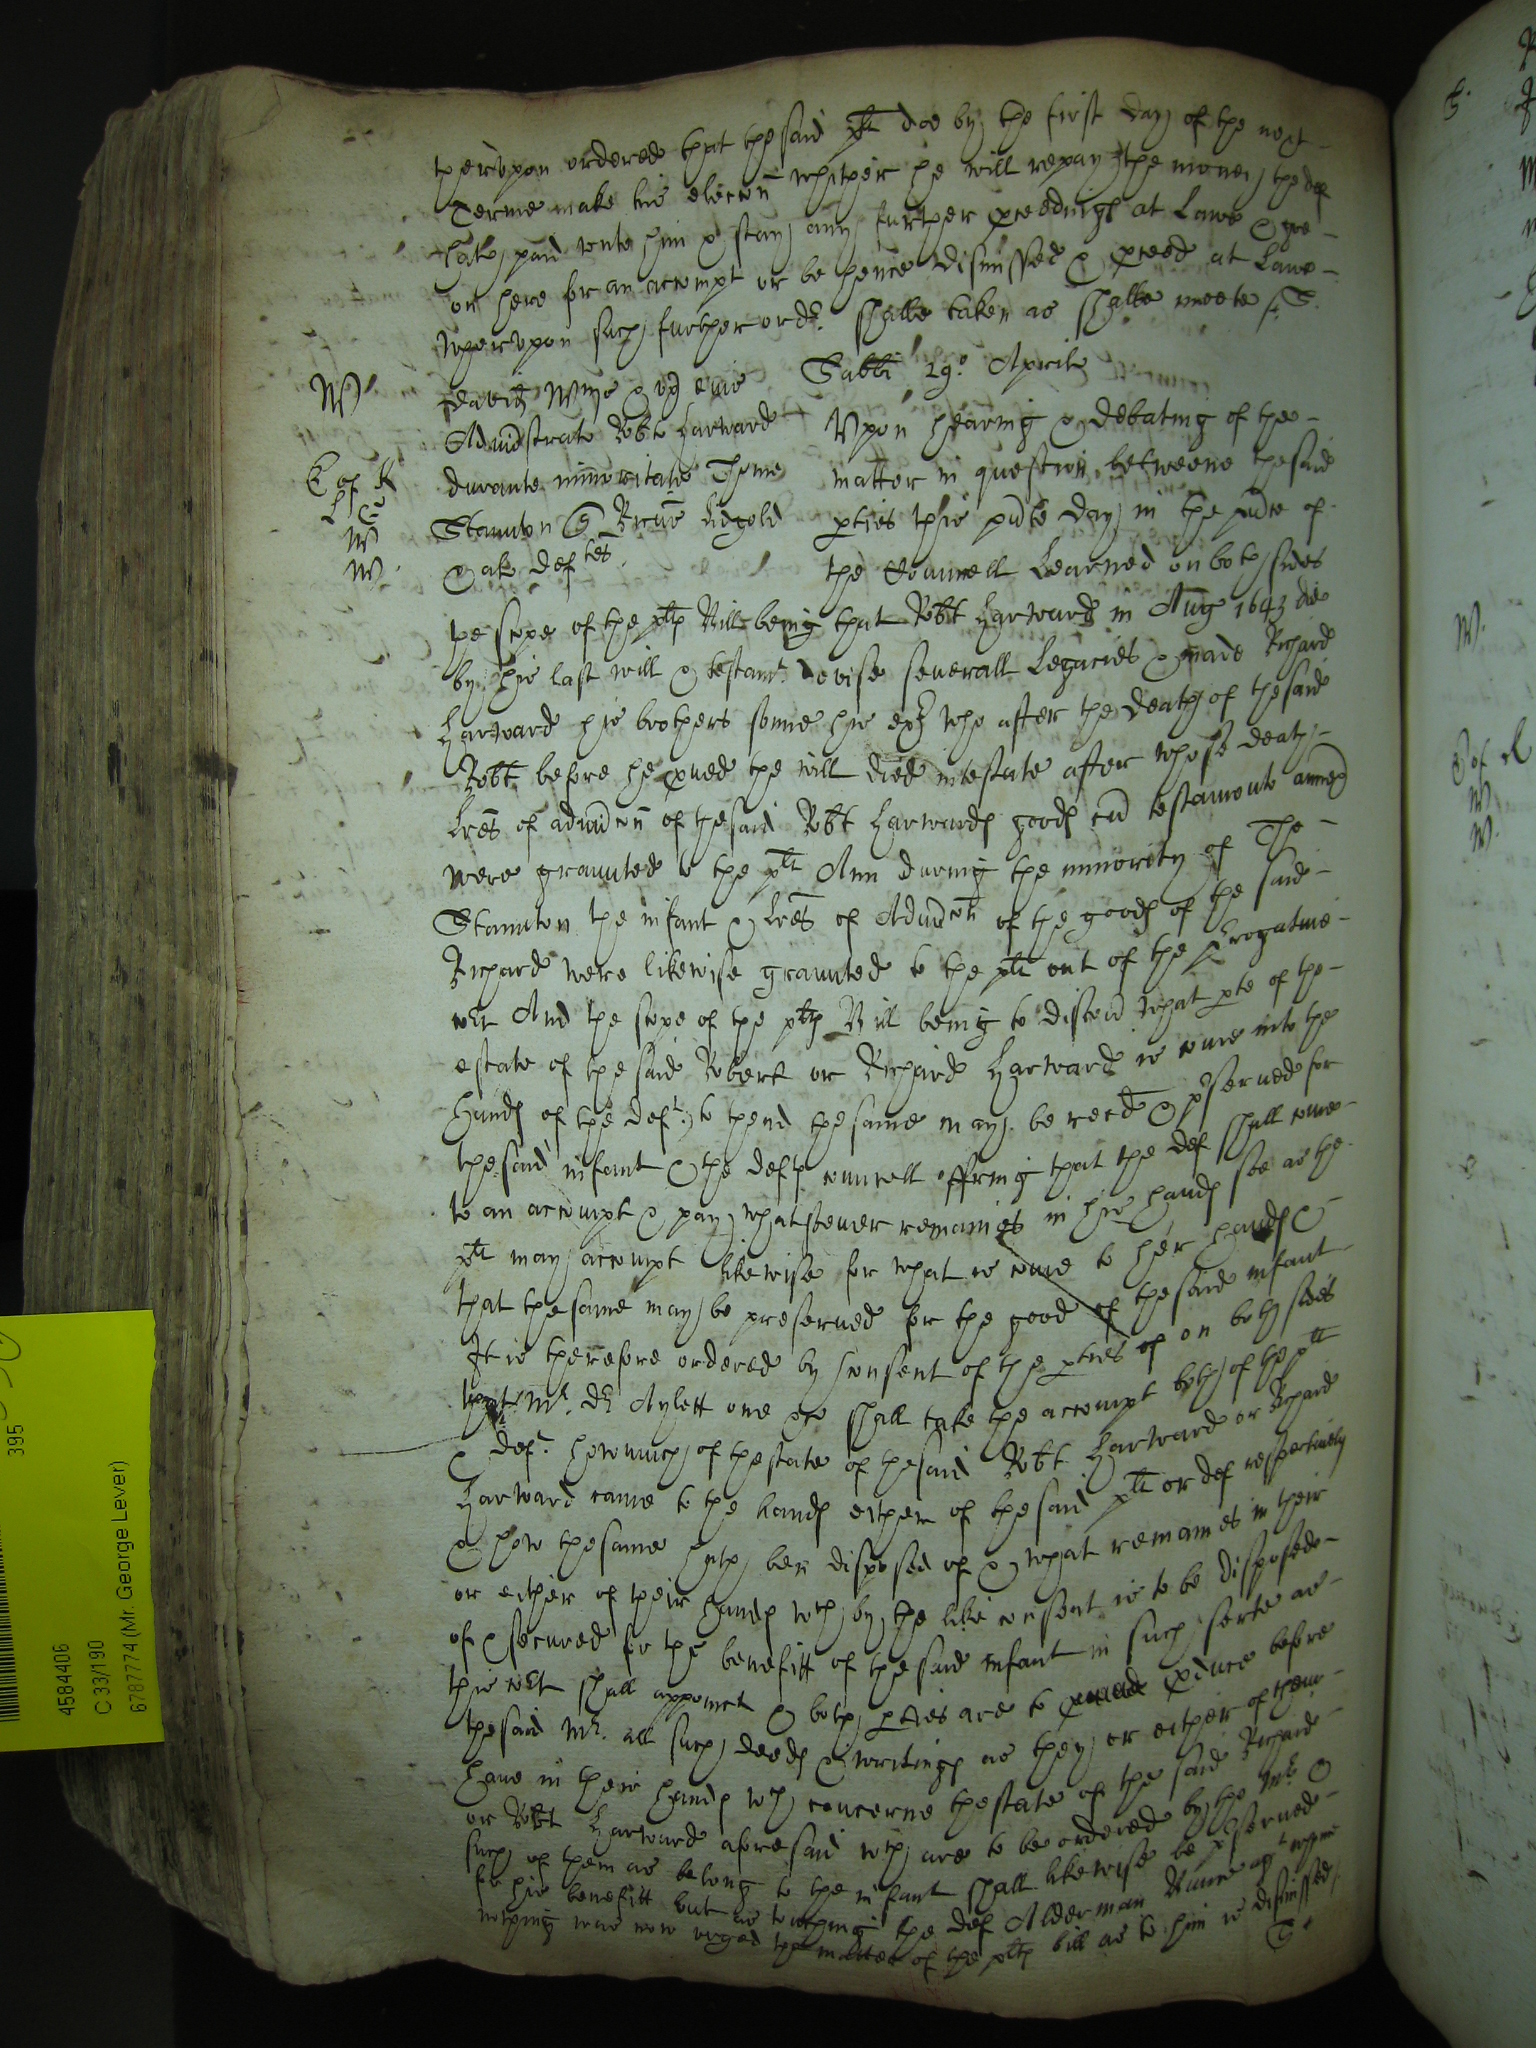 therupon ordered that the said plt doe by the first day of the next
Terme make his eleccon whither he will repay the money the def
hath paid unto him & stay any further pceedings at Lawe & goe
on here for an accompt or be hence dismissed & pceed at Lawe
wherupon such further ordr shalbe taken as shalbe meete
Sabbti 29o Aprilis
David & ux eius
Administrat Robti Harward
durante minoritate Thome
Staunton Quer
& als deftes
Upon hearing & debating of the
matter in question betweene the said
pties this pnte day in the pnce of
the Councell Learned on both sides
the scope of the plts Bill being that Robt Harward in Aug 1643 did
by his last will & testamt devise severall Legacies & made Richard
Harward his brothers sonne his exr who after the death of the said
Robt before he pved the will died intestate after whose death
Lres of admcon of the said Robt Harwards goods cu testamento annex
were graunted to the plt Ann during the minority of Tho
Staunton the infant & Lres of Admcon of the goods of the said
Richard were likewise graunted to the plt out of the Prerogative
Cort And the scope of the plts Bill being to discov what pte of the
estate of the said Robert or Richard Harward is come into the
hands of the deft to thend the same may be recd & pserved for
the said infant & the defts councell offring that the def shall come
to an accompt & pay whatsoever remaines in his hands soe as the
plt may accompt likewise for what is come to her hands &
that the same may be preserved for the good of the said infant
It is therefore ordered by Consent of the pties of on both sides
that Mr. Dr Aylett one &c shall take the accompt both of the plt
& deft. how much of thestate of the said Robt Harward or Richard
Harward came to the hands either of the said plt or def respectively
& how the same hath ben disposed of & what remaines in their
or either of their hands wch by the like consent is to be disposed
of & secured for the benefitt of the said infant in such sorte as
this Cort shall appoint & both pties are to pduce before
the said Mr. all such deeds & writings as they or either of them
have in their hands wch concerne thestate of the said Richard
or Robt Harward aforesaid wch are to be ordered by the Mr. &
such of them as belong to the infant shall likewise be pserved
for his benefitt but as touching the def Alderman agt whome
nothing was now urged the matter of the plts bill as to him is dismissed
4584406
C 33/190
6787774 (Mr. George Lever)
395